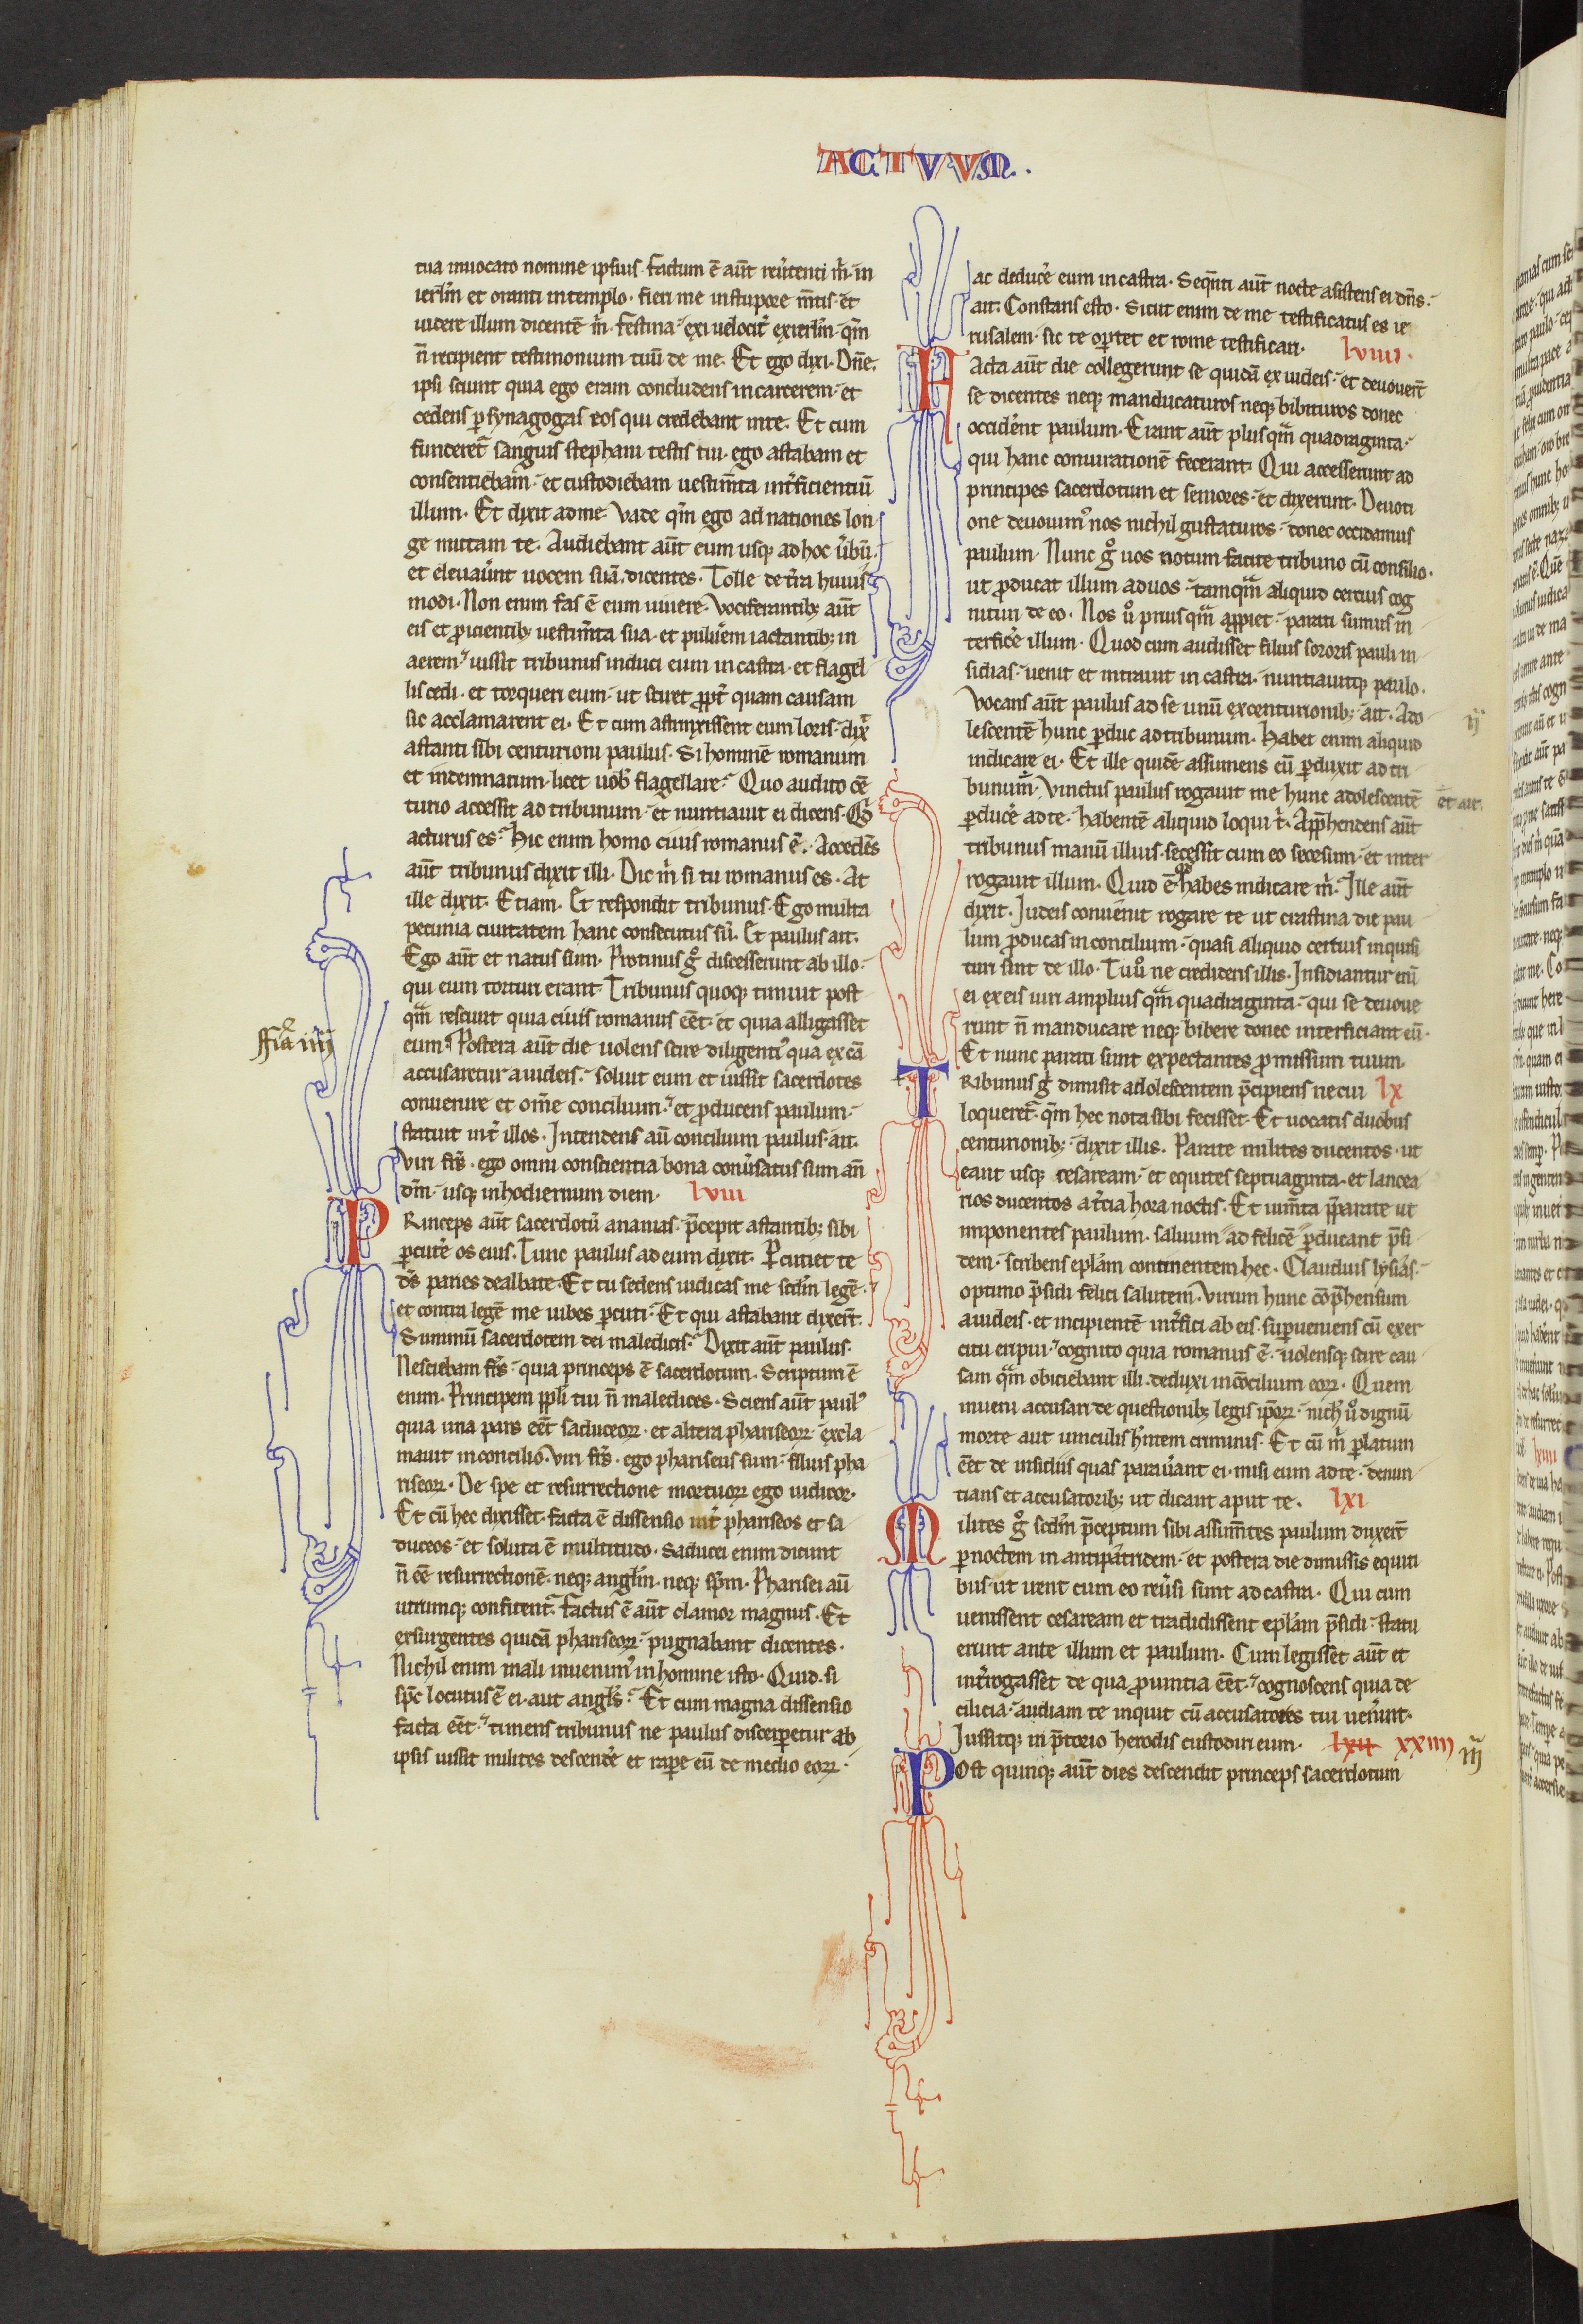 ACTVVM.
tua inuocato nomine ipsius. factum ē aūt reu̓tenti m̓. in
ierl̓m et oranti in templo. fieri me in stupore m̄tis. et
uidere illum dicentē m̓. festina. exi uelocit̓ ex ierl̓m. qm̄
n̄ recipient testimonium tuū de me. Et ego dixi. Dn̄e.
ipsi sciunt quia ego eram concludens in carcerem. et
cedens ꝑ synagogas eos qui credebant in te. Et cum
funderet᷑ sanguis stephani testis tui. ego astabam et
consentiebam. et custodiebam uestim̄ta int̓ficientiū
illum. Et dixit ad me. Vade qm̄ ego ad nationes lon
ge mittam te. Audiebant aūt eum usqꝫ ad hoc u̓bū.
et eleuau̓nt uocem suā dicentes. Tolle de t̓ra huius
modi. Non enim fas ē eum uiuere. Vociferantibꝫ aūt
eis et ꝓicientibꝫ uestim̄ta sua. et puluerem iactantibꝫ in
aerem. iussit tribunus induci eum in castra. et flagel
lis cedi. et torqueri eum. ut sciret ꝓpt̓ quam causam
sic acclamarent ei. Et cum astrinxissent eum loris. dix̓
astanti sibi centurioni paulus. Si hominē romanum
et indemnatum. licet uob̓ flagellare. Quo audito cē
turio accessit ad tribunum. et nuntiauit ei dicens. Qͩ
acturus es. Hic enim homo ciuis romanus ē. Accedēs
aūt tribunus dixit illi. Dic m̓ si tu romanus es. At
ille dixit. Etiam. Et respondit tribunus. Ego multa
pecunia ciuitatem hanc consecutus sū. Et paulus ait.
Ego aūt et natus sum. Protinus gͦ discesserunt ab illo.
qui eum torturi erant. Tribunus quoqꝫ timuit post
qͣm resciuit quia ciuis romanus eēt. et quia alligasset
eum. Postera aūt die uolens scire diligenti᷒ qua ex cā
accusaretur a iudeis. soluit eum et iussit sacerdotes
conuenire et om̄e concilium. et ꝓducens paulum.
statuit int̓ illos. Intendens aū concilium paulus. ait.
Viri fr̄s. ego omni conscientia bona conu̓satus sum an̄
dm̄. usqꝫ in hodiernum diem. lviii
PRinceps aūt sacerdotū ananias. p̄cepit astantibꝫ sibi
ꝑcute᷑ os eius. Tunc paulus ad eum dixit. Ꝑcutiet te
ds̄ paries dealbate. Et tu sedens iudicas me scd̓m legē.
et contra legē me iubes ꝑcuti. Et qui astabant dixer̄t.
Summū sacerdotem dei maledicis. Dixit aūt paulus.
Nesciebam fr̄s. quia princeps ē sacerdotum. Scriptum ē
enim. Principem ppl̓i tui n̄ maledices. Sciens aūt paul᷒
quia una pars eēt saduceoꝝ. et altera phariseoꝝ. excla
mauit in concilio. Viri fr̄s. ego phariseus sum. filius pha
riseoꝝ. De spe et resurrectione mortuoꝝ ego iudicor.
Et cū hec dixisset. facta ē dissensio int̓ phariseos et sa
duceos. et soluta ē multitudo. Saducei enim dicunt
n̄ eē resurrectionē. neqꝫ angl̓m. neqꝫ sp̄m. Pharisei aū
utrumqꝫ confitent᷑. factus ē aūt clamor magnus. Et
exsurgentes quidā phariseoꝝ. pugnabant dicentes.
Nichil enim mali inuenim᷒ in homine isto. Quid. si
sp̄c locutus ē ei. aut angl̓s. Et cum magna dissensio
facta eēt. timens tribunus ne paulus discerꝑetur ab
ipsis iussit milites descende᷑ et raꝑe eū de medio eoꝝ.
ffīa iiij
ac deduce᷑ eum in castra. Seqn̄ti aūt nocte asistens ei dn̄s.
ait. Constans esto. Sicut enim de me testificatus es ie
rusalem. sic te oꝑtet et rome testificari. lviiii.
FActa aūt die collegerunt se quidā ex iudeis. et deuouer̄t
se dicentes neqꝫ manducaturos neqꝫ bibituros donec
occider̓ent paulum. Erant aūt plusqͣm quadraginta.
qui hanc coniurationē fecerant. Qui accesserunt ad
principes sacerdotum et seniores. et dixerunt. Deuoti
one deuouim᷒ nos nichil gustaturos. donec occidamus
paulum. Nunc gͦ uos notum facite tribuno cū consilio.
ut ꝓducat illum ad uos. tamqͣm aliquid certius cog
nituri de eo. Nos uͦ priusqͣm appiet. parati sumus in
terfice᷑ illum. Quod cum audisset filius sororis pauli in
sidias. uenit et intrauit in castra. nuntiauitqꝫ paulo.
Vocans aūt paulus ad se unū ex centurionibꝫ. ait. Ado
lescentē hunc ꝑduc ad tribunum. Habet enim aliquid
indicare ei. Et ille quidē assumens eū ꝑduxit ad tri
bunum. Vinctus paulus rogauit me hunc adolescentē
ꝑduce᷑ ad te. habentē aliquid loqui t̓. App̄hendens aūt
tribunus manū illius. secessit cum eo secesum. et inter
rogauit illum. Quid ē qͩ habes indicare m̓. Ille aūt
dixit. Iudeis conuenit rogare te ut crastina die pau
lum ꝓducas in concilium. quasi aliquid certius inquisi
turi sint de illo. Tu uͦ ne credideris illis. Insidiantur eni̅
ei ex eis uiri amplius qͣm quadraginta. qui se deuoue
runt n̄ manducare neqꝫ bibere donec interficiant eū.
Et nunc parati sunt expectantes ꝓmissum tuum.
TRibunus gͦ dimisit adolescentem p̄cipiens ne cui lx
loqueret᷑. qm̄ hec nota sibi fecisset. Et uocatis duobus
centurionibꝫ. dixit illis. Parate milites ducentos. ut
eant usqꝫ cesaream. et equites septuaginta. et lancea
rios ducentos a t̓cia hora noctis. Et ium̄ta p̄parate ut
imponentes paulum. saluum ad felicē ꝑducant p̄si
dem. scribens epl̓am continentem hec. Claudius lysias.
optimo p̄sidi felici salutem. Virum hunc cōp̄hensum
a iudeis. et incipientē int̓fici ab eis. suꝑueniens cū exer
citu eripui. cognito quia romanus ē. uolensqꝫ scire cau
sam qͣm obiciebant illi. deduxi in cōcilium eoꝝ. Quem
inueni accusari de questionibꝫ legis ip̄oꝝ. nich̓ uͦ dignū
morte aut uinculis hn̄tem criminis. Et cū m̓ ꝑlatum
eēt de insidiis quas parau̓ant ei. misi eum ad te. denun
tians et accusatoribꝫ ut dicant aput te. lxi
MIlites gͦ scd̓m p̄ceptum sibi assum̄tes paulum duxer̄t
ꝑ noctem in antipatridem. et postera die dimissis equiti
bus. ut irent cum eo reu̓si sunt ad castra. Qui cum
uenissent cesaream et tradidissent epl̓am p̄sidi. statu
erunt ante illum et paulum. Cum legisset aūt et
int̓rogasset de qua ꝓuintia eēt. cognoscens quia de
cilicia. audiam te inquit cū accusatores tui uen̓int.
Iussitqꝫ in p̄torio herodis custodiri eum. lxii xxiiii
POst quinqꝫ aūt dies descendit princeps sacerdotum
ij
et ait.
iij